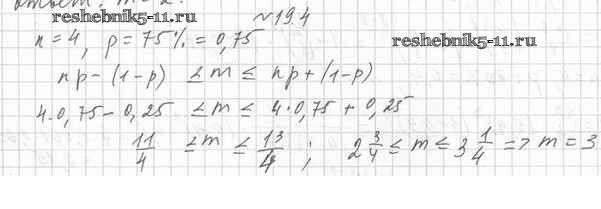 ответ: m = 2.
reshebnik5-11.ru
№19.4
n = 4, p = 75% = 0,75
reshebnik5-11.ru
np - (1-p) ≤ m ≤ np + (1-p)
4·0,75 - 0,25 ≤ m ≤ 4·0,75 + 0,25
11/4 ≤ m ≤ 13/4 ; 2 3/4 ≤ m ≤ 3 1/4 => m = 3